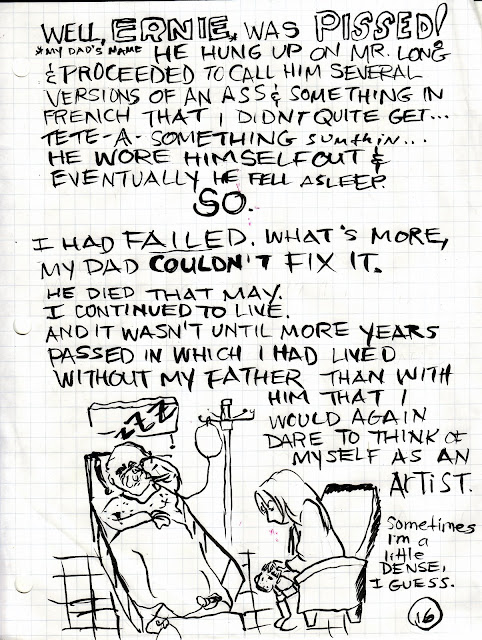 WELL, ERNIE* WAS PISSED!
*MY DAD'S NAME HE HUNG UP ON MR. LONG
& PROCEEDED TO CALL HIM SEVERAL
VERSIONS OF AN ASS & SOMETHING IN
FRENCH THAT I DIDNT QUITE GET...
TETE-A-SOMETHING sumthin...
HE WORE HIMSELF OUT &
EVENTUALLY HE FELL ASLEEP.
SO.
I HAD FAILED. WHAT'S MORE,
MY DAD COULDN'T FIX IT.
HE DIED THAT MAY.
I CONTINUED TO LIVE.
AND IT WASN'T UNTIL MORE YEARS
PASSED IN WHICH I HAD LIVED
WITHOUT MY FATHER THAN WITH
HIM THAT I
WOULD AGAIN
DARE TO THINK OF
MYSELF AS AN
ARTIST.
ZZZ
Sometimes
I'm a
little
DENSE,
I GUESS.
16